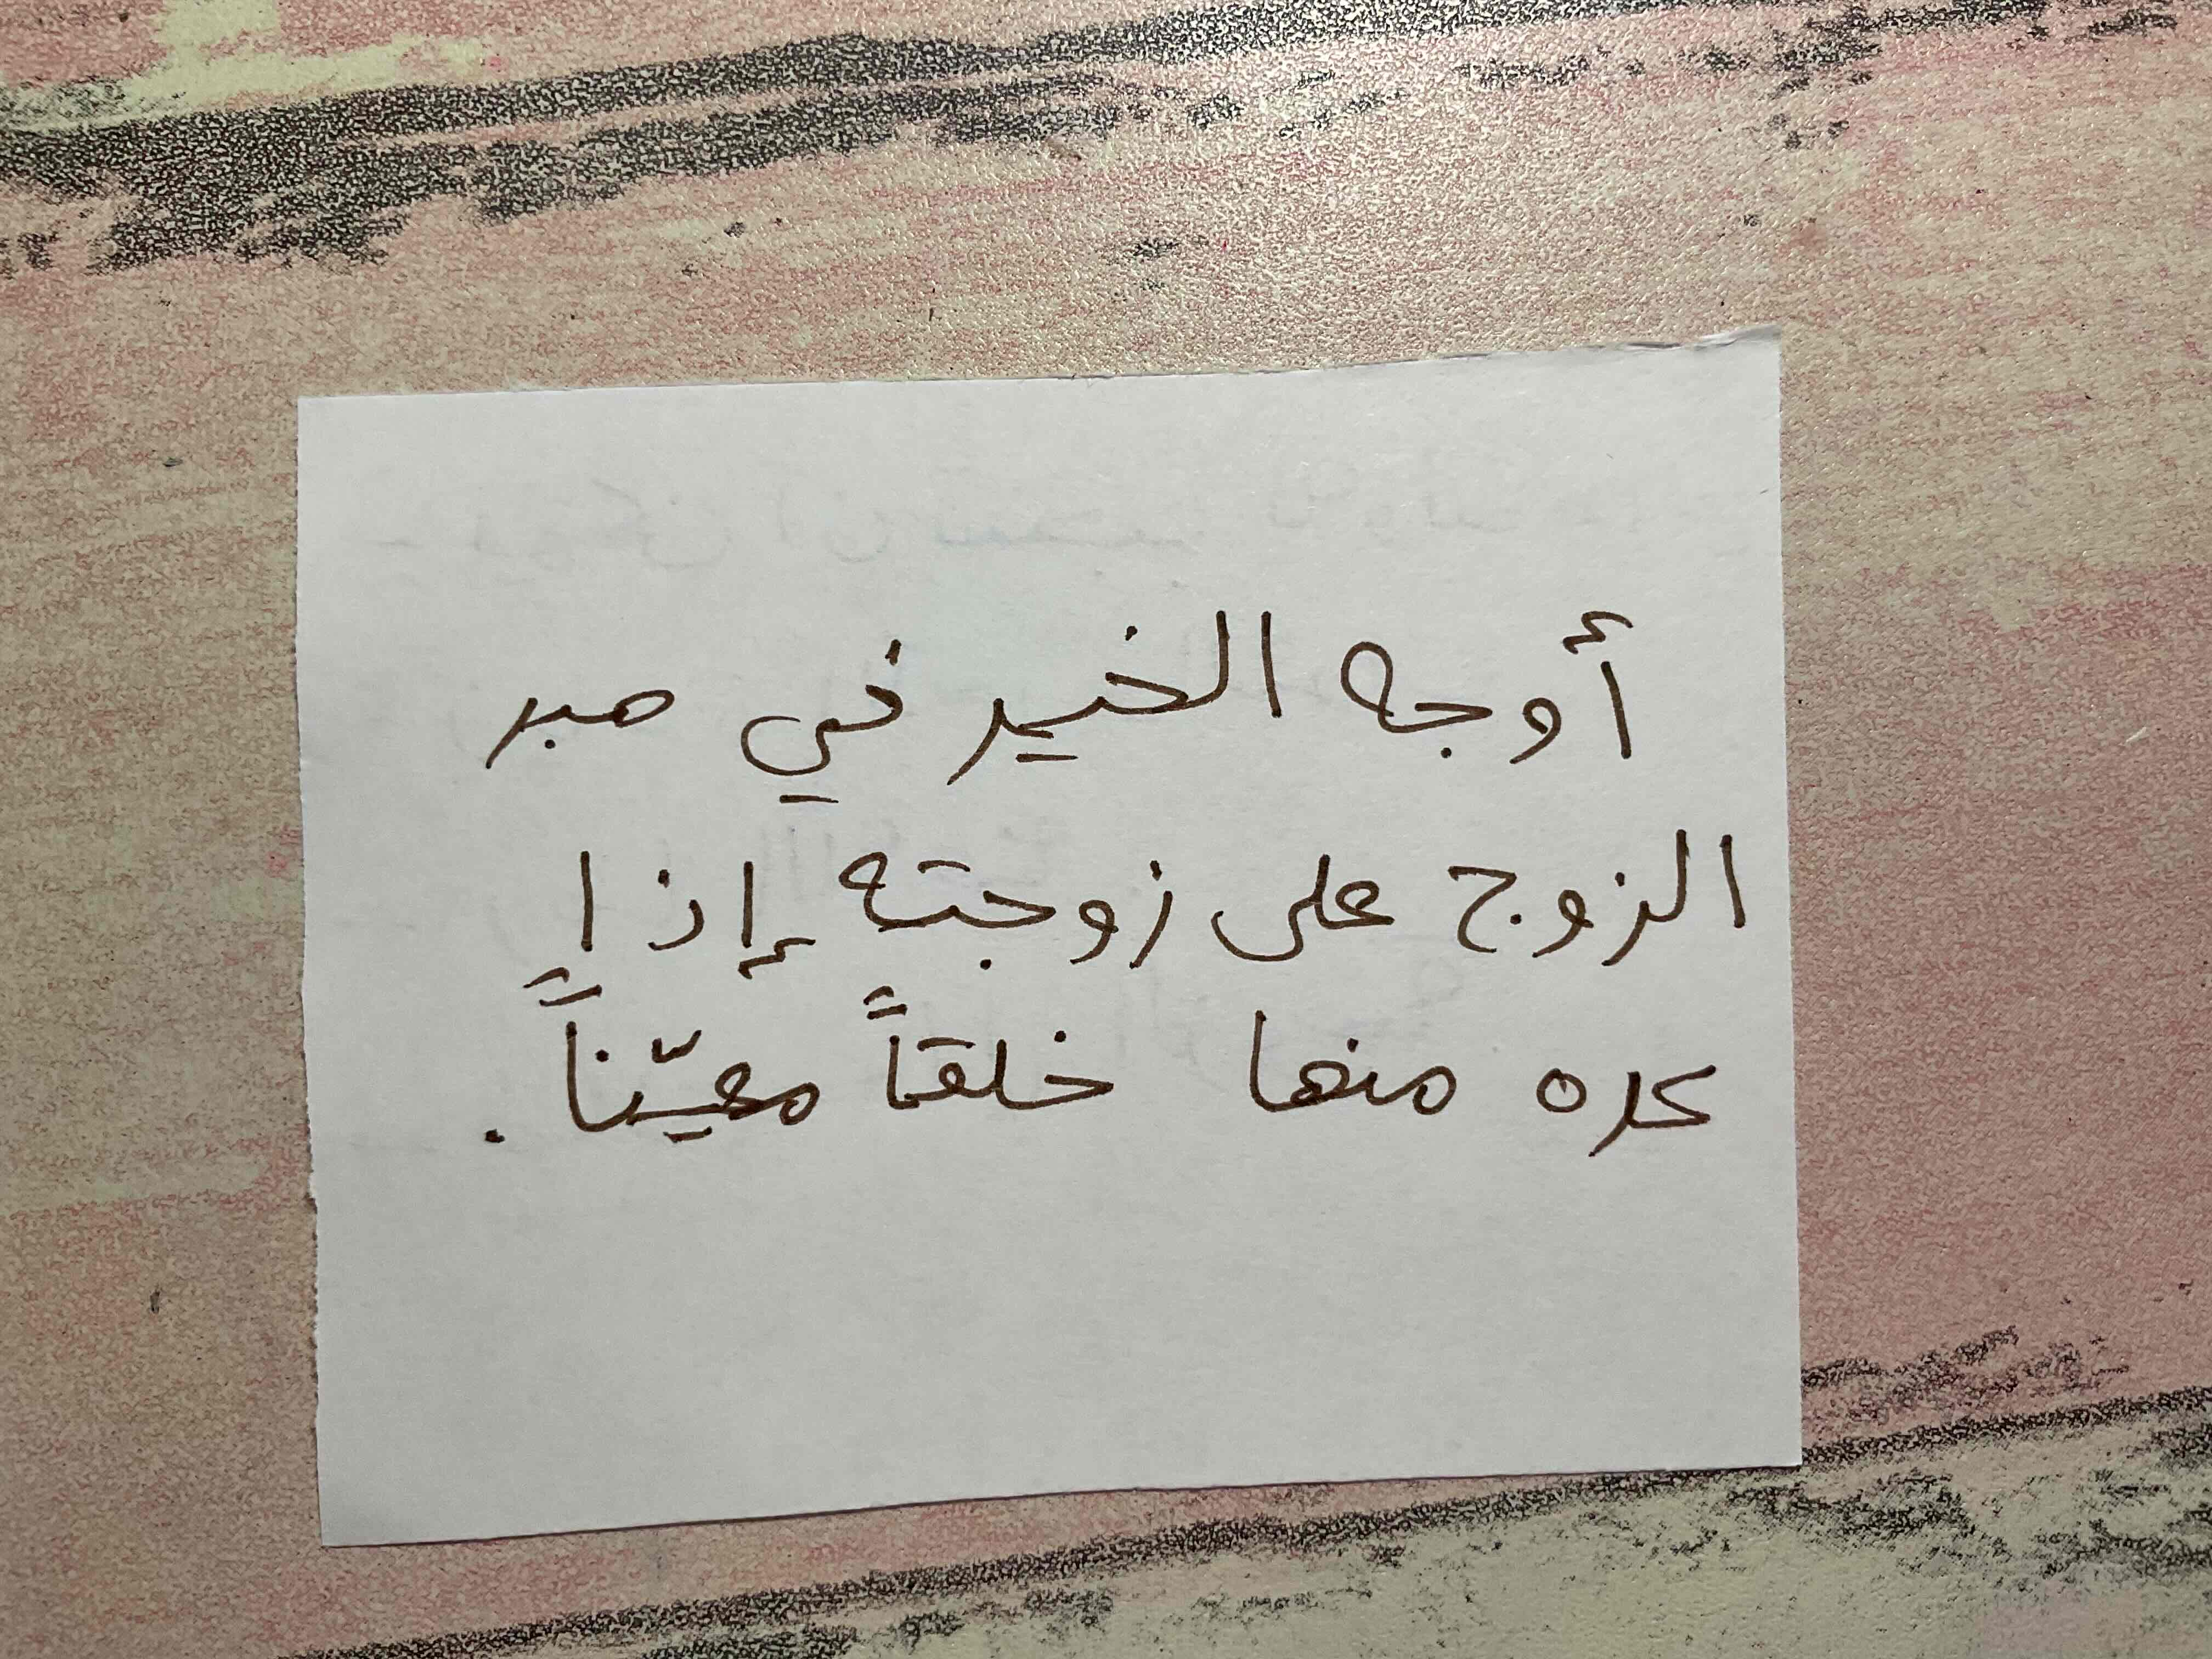 أوجه الخير في صبر
الزوج على زوجته إذا
كره منها خلقاً معيّناً.